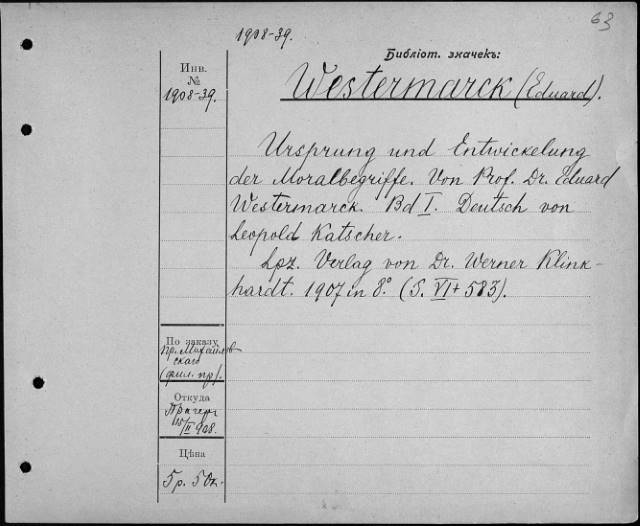 63
1908-39.
Библіот. значекъ:
Инв.
№
1908-39.
Westermarck (Eduard).
Ursprung und Entwickelung
der Moralbegriffe. Von Prof. Dr. Eduard
Westermarck. Bd I. Deutsch von
Leopold Katscher.
Lpz. Verlag von Dr. Werner Klink-
hardt. 1907 in 8º. (S. VI + 583).
По заказу
пр. Михайлов
скаго
(фил. пр).
Откуда
Прагеръ
II 908.
Цѣна
5р. 50к.